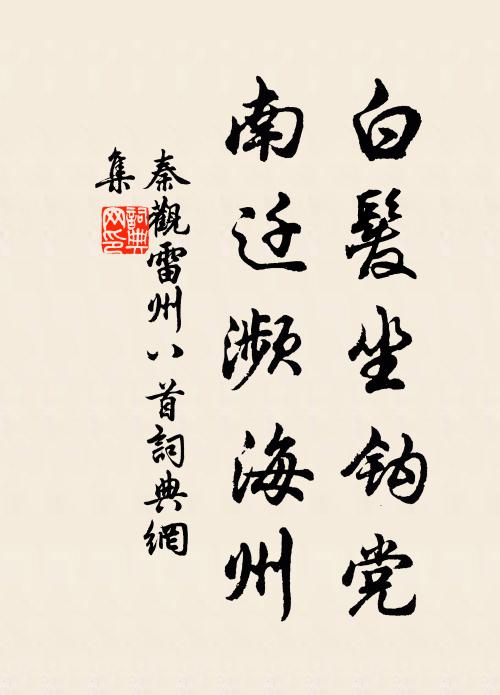 白髮坐鈎党
南迁瀕海州
秦觀雷州八首詞典網
集
詞典網印